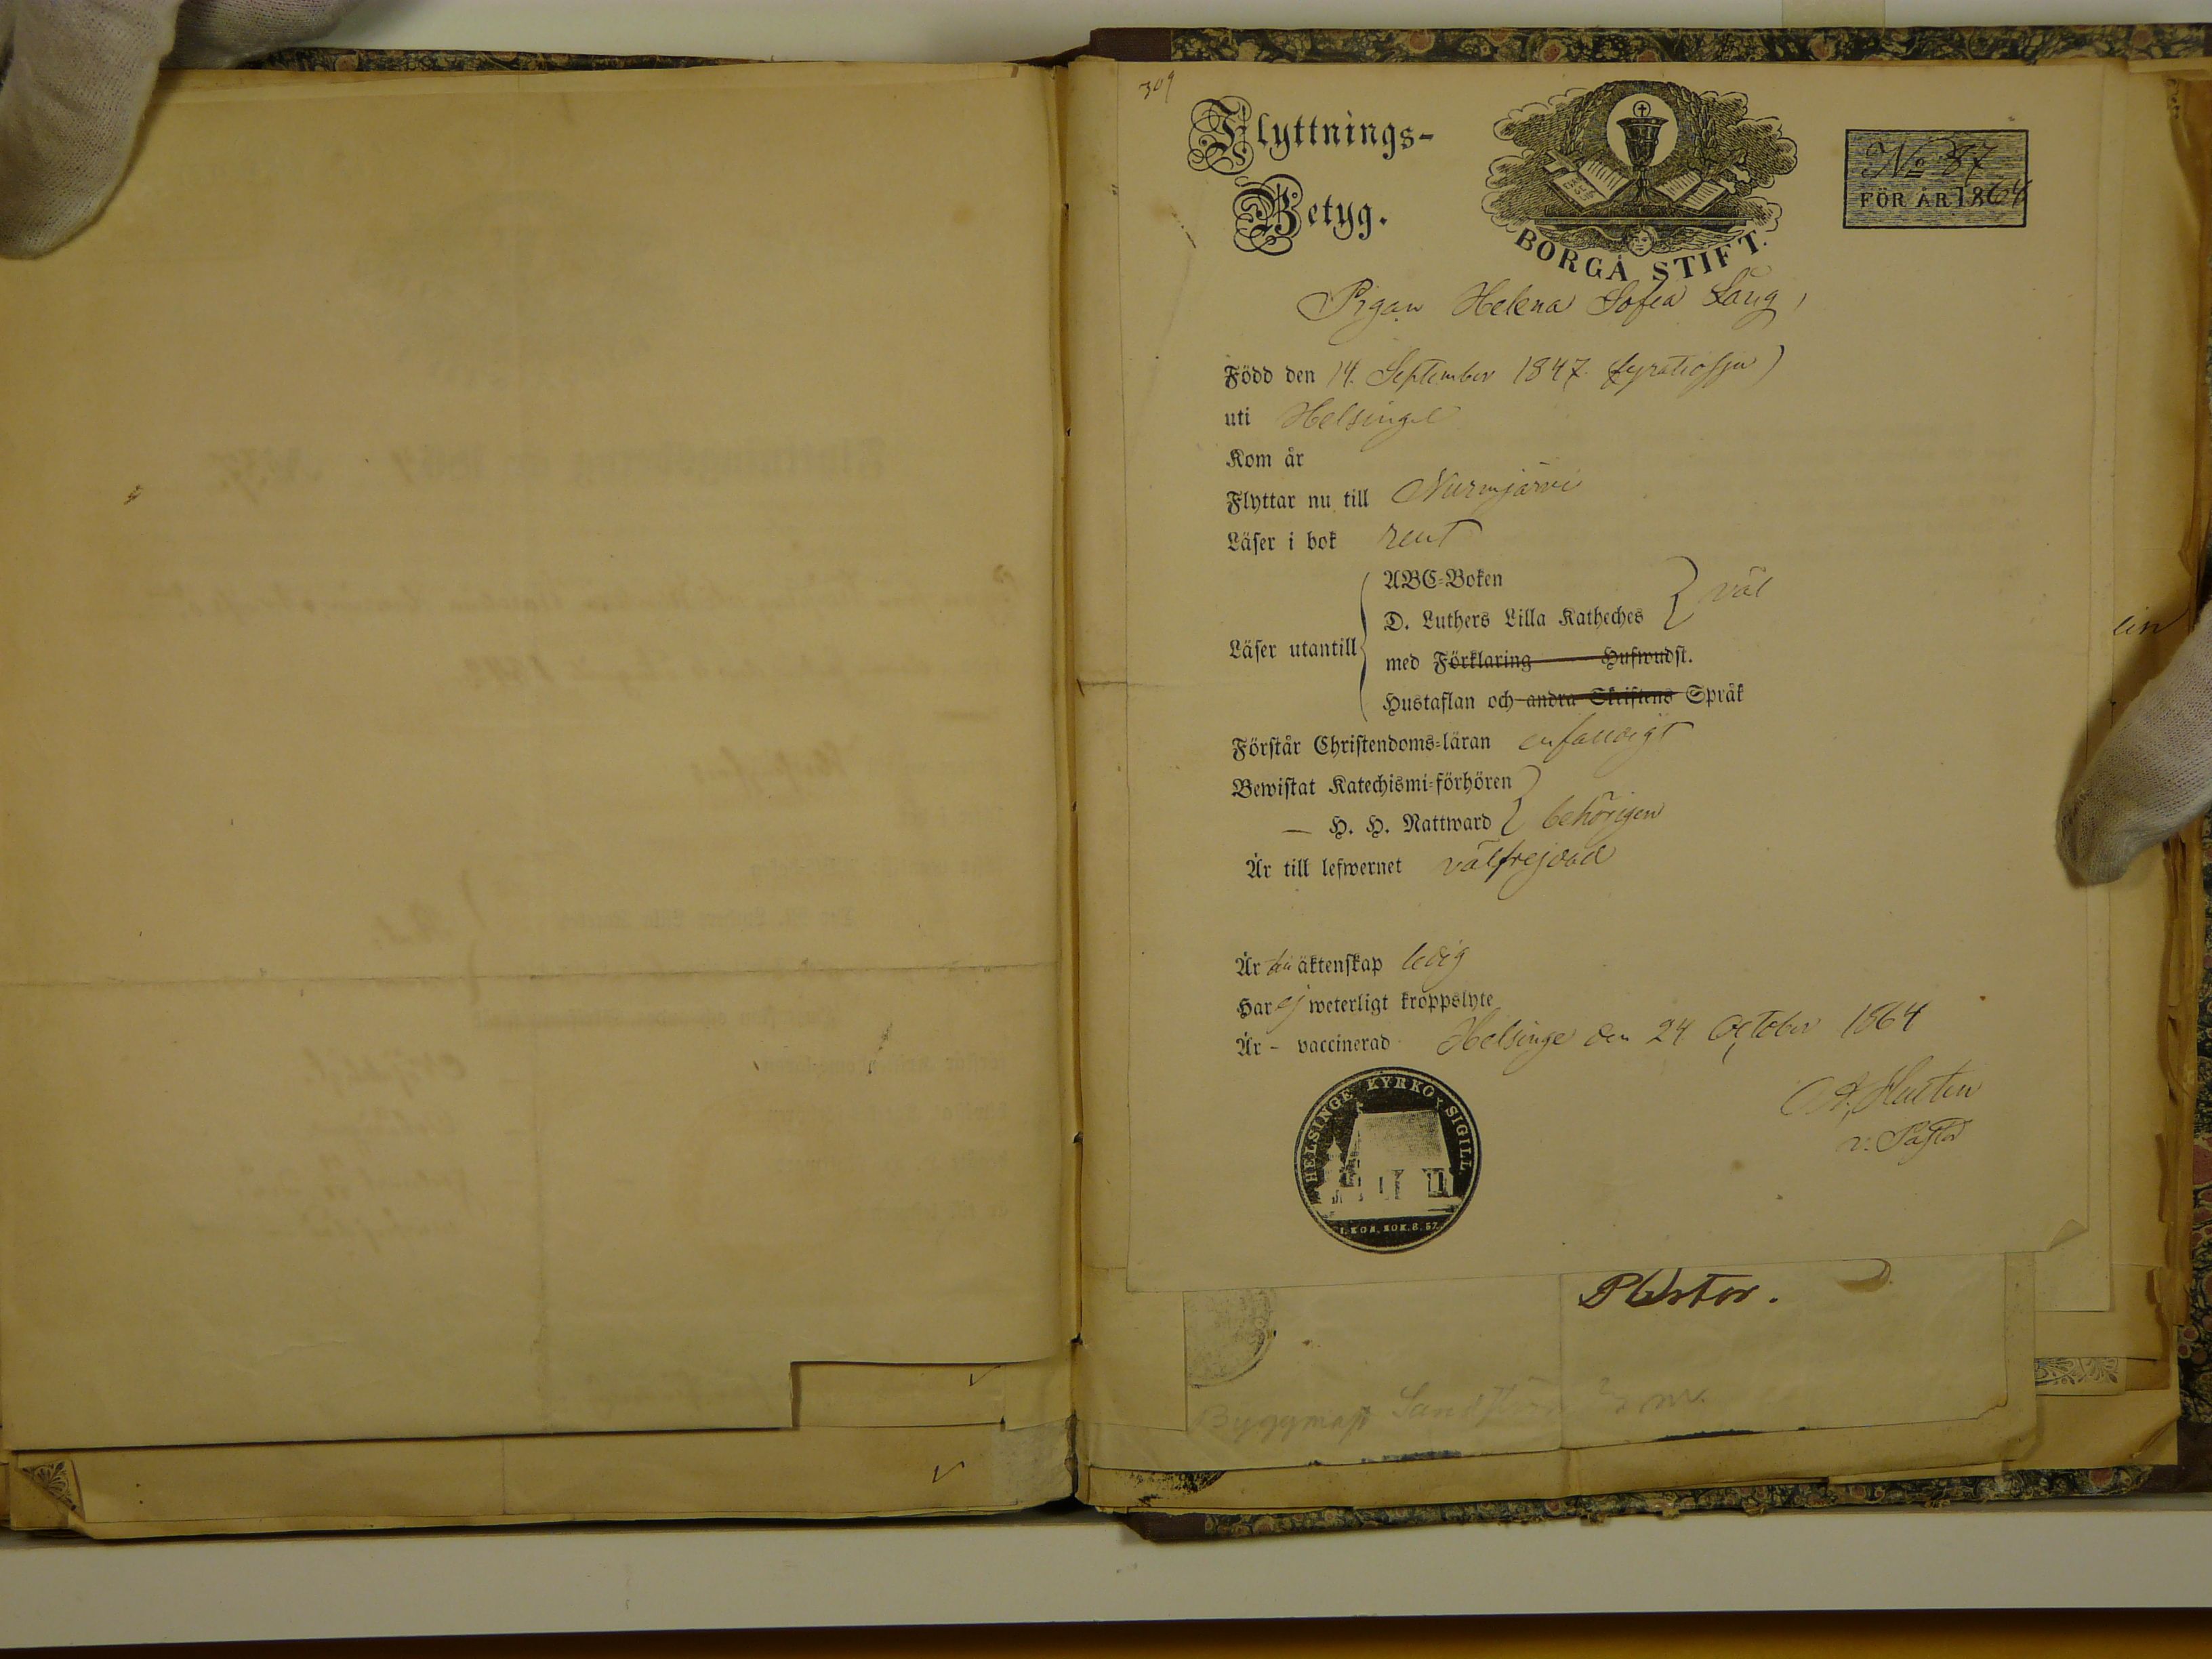 309
Flyttnings-
Betyg.
BORGÅ STIFT.
No 87
FÖR ÅR 1864
Pigan Helena Sofia Lång,
Född den 14. September 1847 (fyratiosju)
uti Helsinge
Kom år
Flyttar nu till Nurmijärvi
Läser i bok rent
Läser utantill
ABC-Boken
D. Luthers Lilla Katheches
väl
med Förklaring Hufwudst.
Hustaflan och andra Skriftens Språk
Förstår Christendoms-läran enfaldigt
Bewistat Katechismi-förhören
— H. H. Nattward behörigen
Är till lefwernet välfrejdad
Är till äktenskap ledig
Har ej weterligt kroppslyte
Är - vaccinerad
Helsinge den 24 October 1864
v. Pastor
HELSINGE KYRKO SIGILL
Pastor.
Byggmast